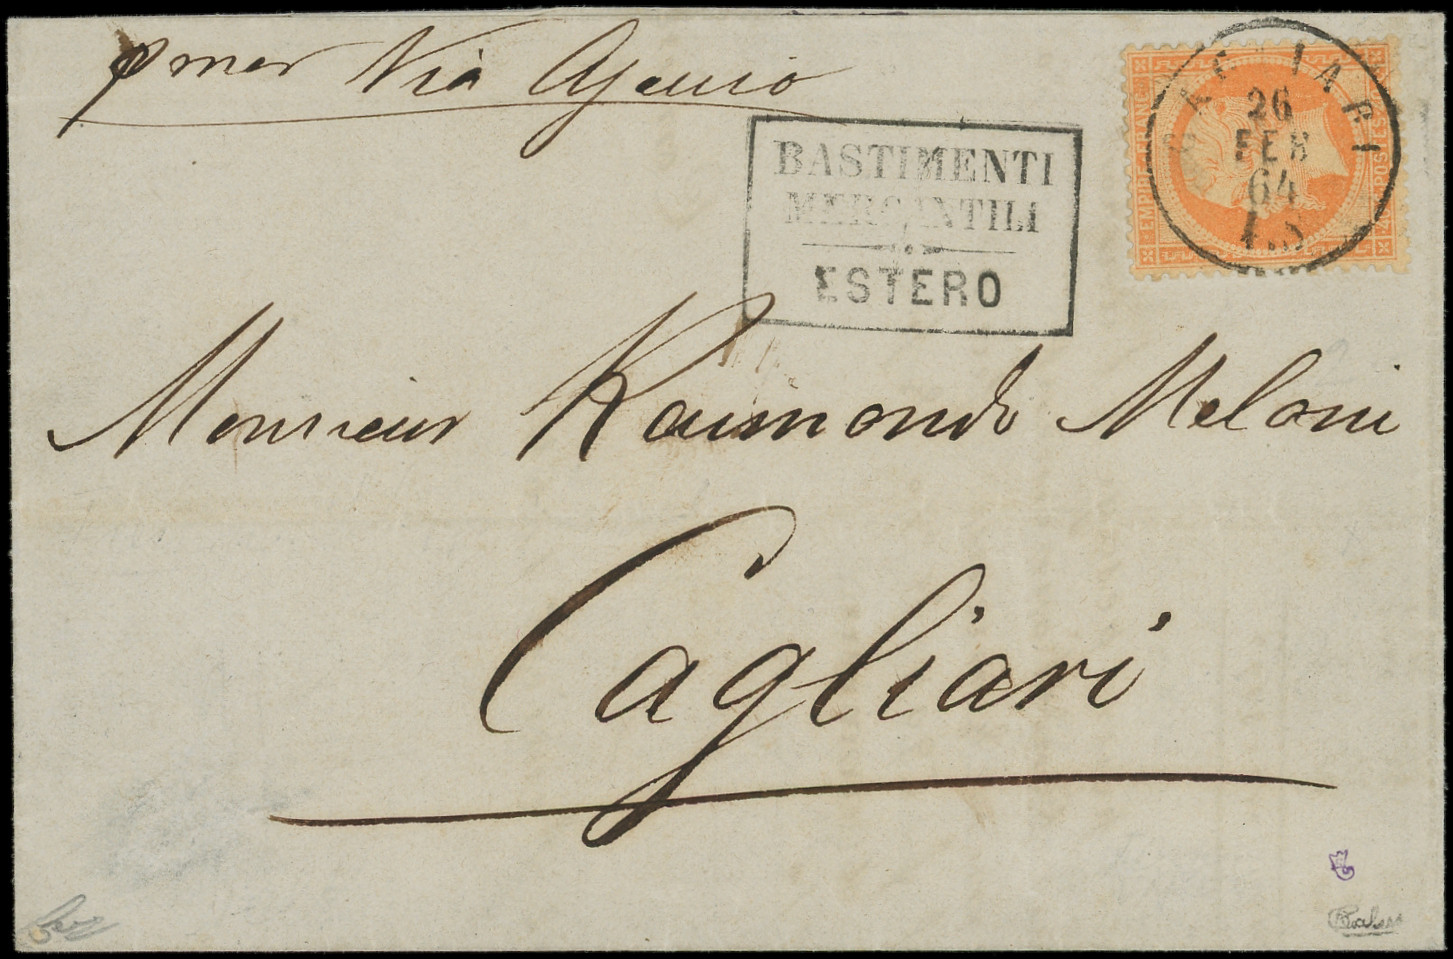 p mer Via Ajaccio
BASTIMENTI
MERCANTILI
ESTERO
CAGLIARI
26
FEB
64
EMPIRE FRANC
POSTES
Monsieur Raimondo Meloni
Cagliari